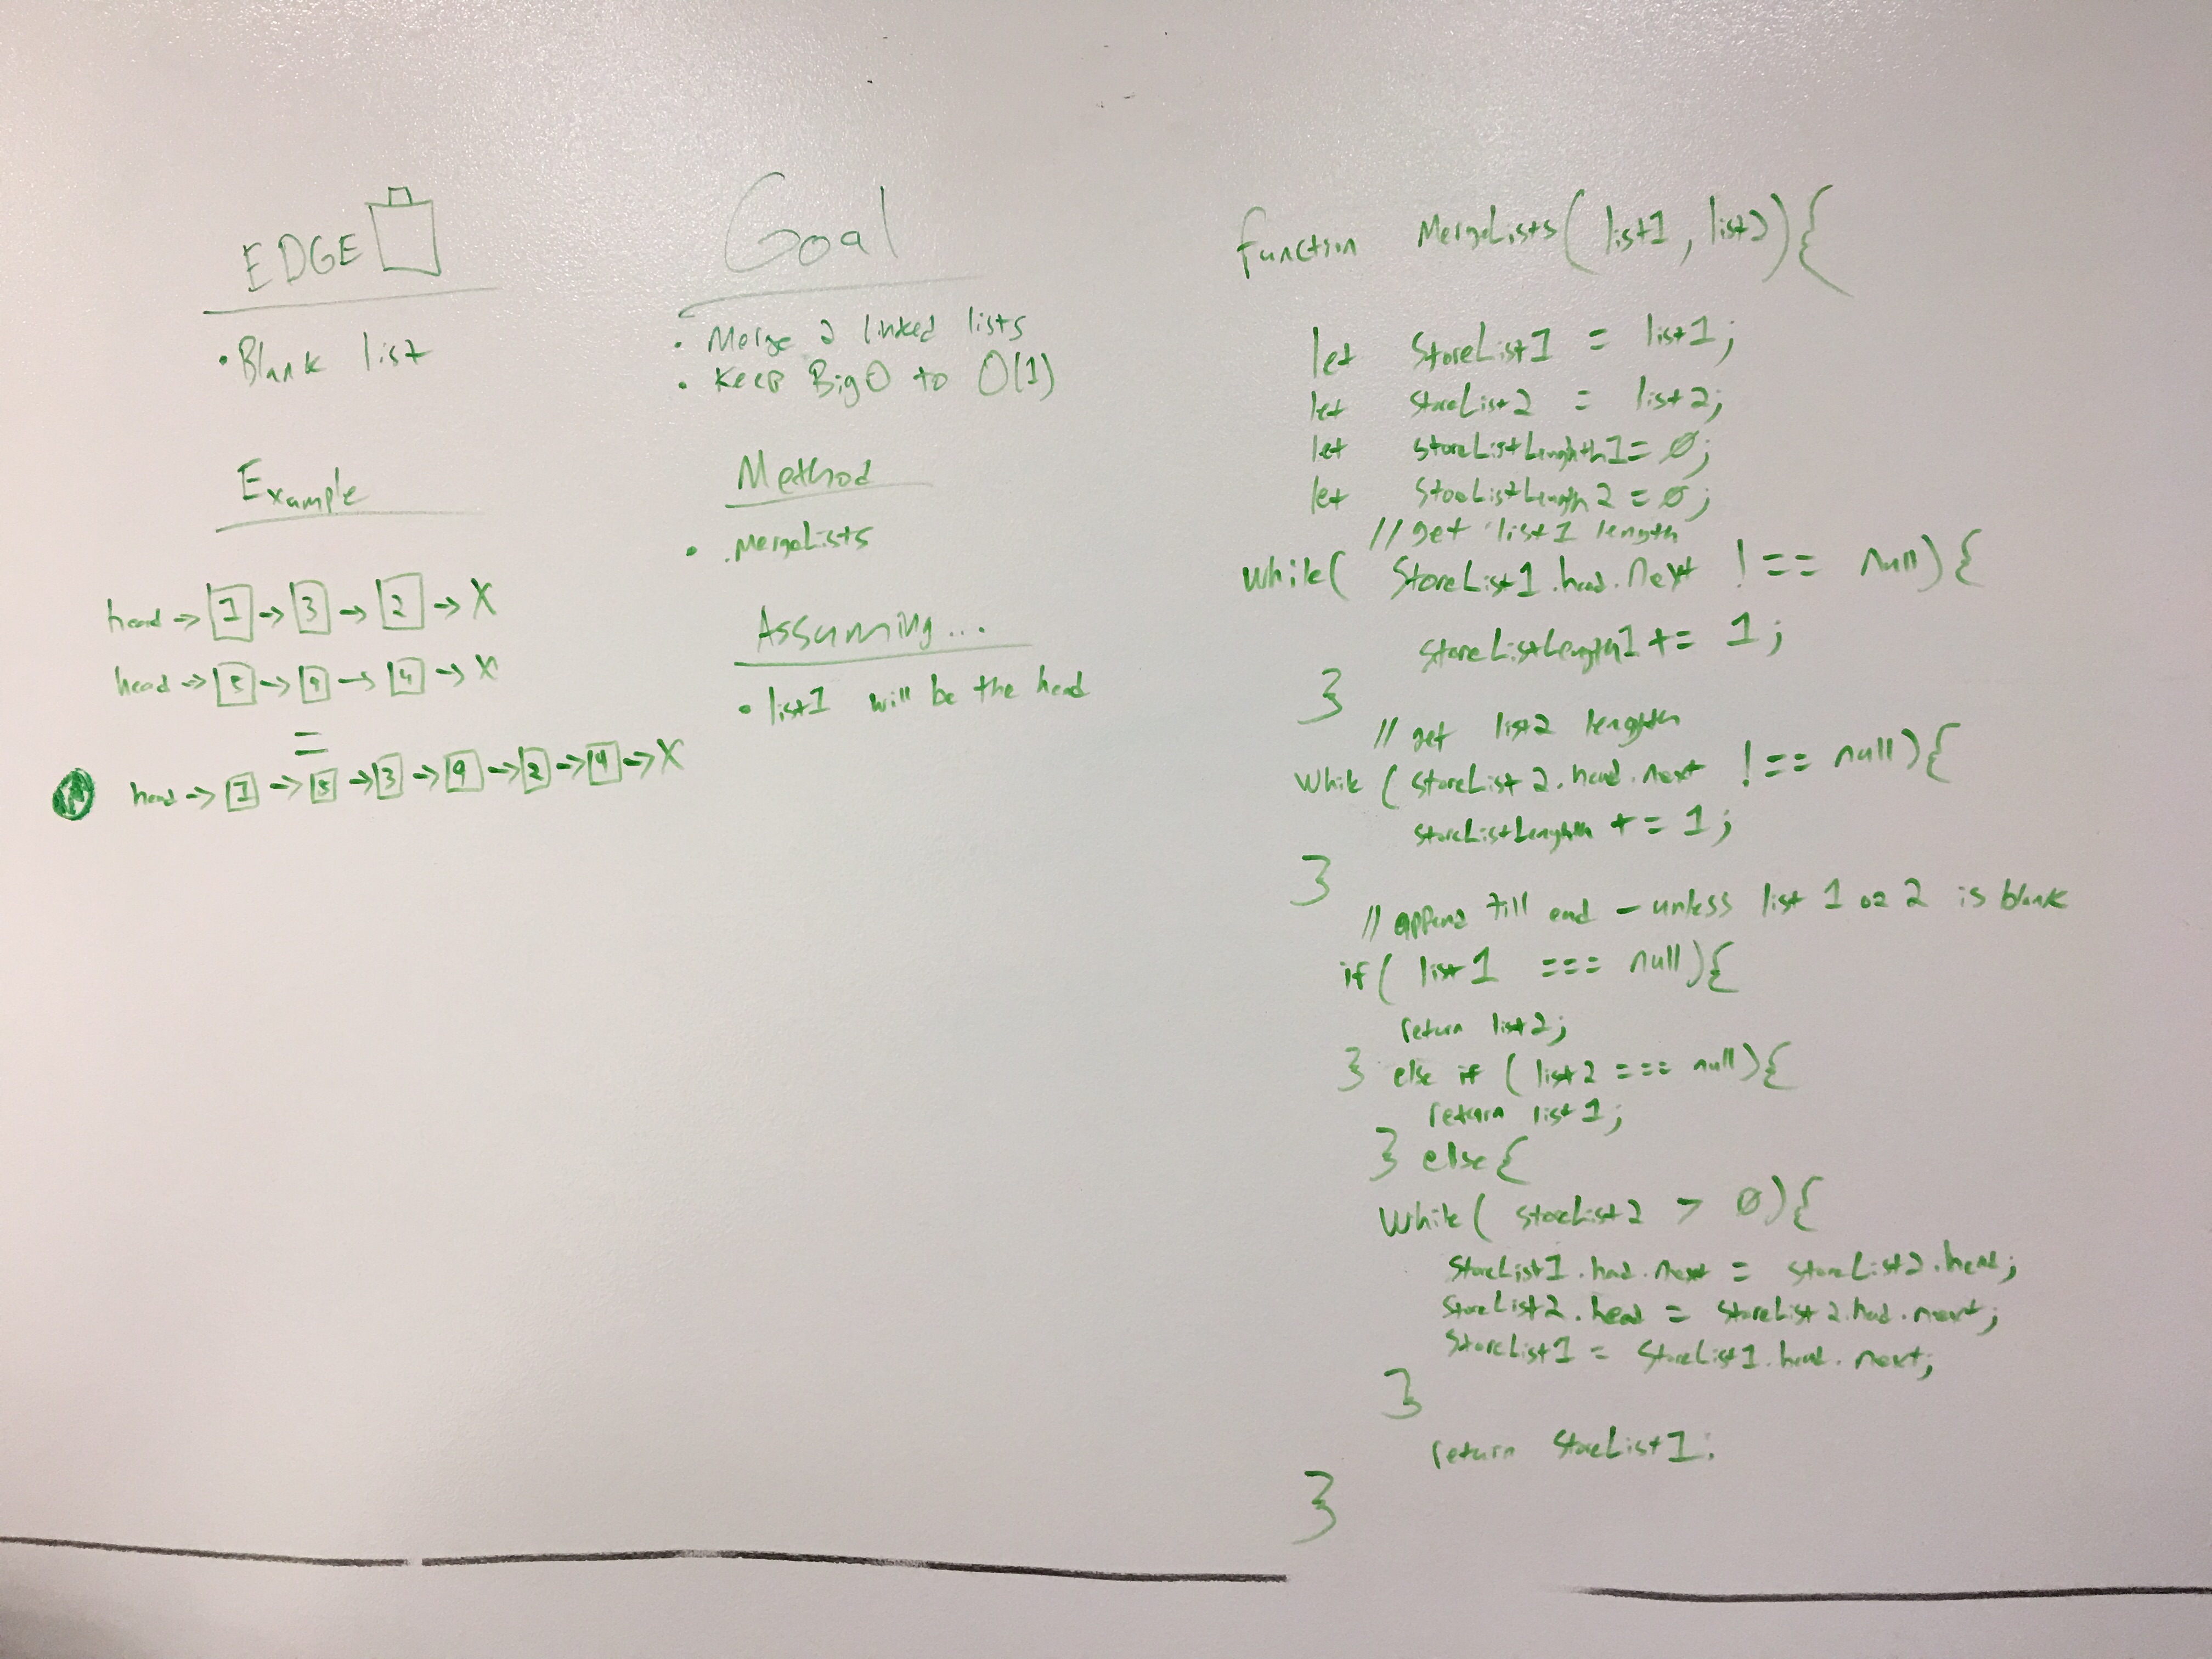 EDGE
• Blank list
Example
head → 1 → 3 → 2 → X
head → 5 → 9 → 4 → X
=
head → 1 → 5 → 3 → 9 → 2 → 4 → X
Goal
• Merge 2 linked lists
• Keep Big O to O(1)
Method
• mergeLists
Assuming...
• list1 will be the head
function MergeLists(list1, list2){
let StoreList1 = list1;
let StoreList2 = list2;
let storeListLenghth1 = 0;
let StoreListLength2 = 0;
// get list1 length
while( StoreList1.head.next !== null){
storeListLength1 += 1;
}
// get list2 length
while (storeList2.head.next !== null){
storeListLenghth += 1;
}
// append till end - unless list 1 or 2 is blank
if( list1 === null){
return list2;
} else if (list2 === null){
return list1;
} else{
while( storeList2 > 0){
StoreList1.head.next = storeList2.head;
StoreList2.head = storeList2.head.next;
StoreList1 = StoreList1.head.next;
}
return StoreList1;
}